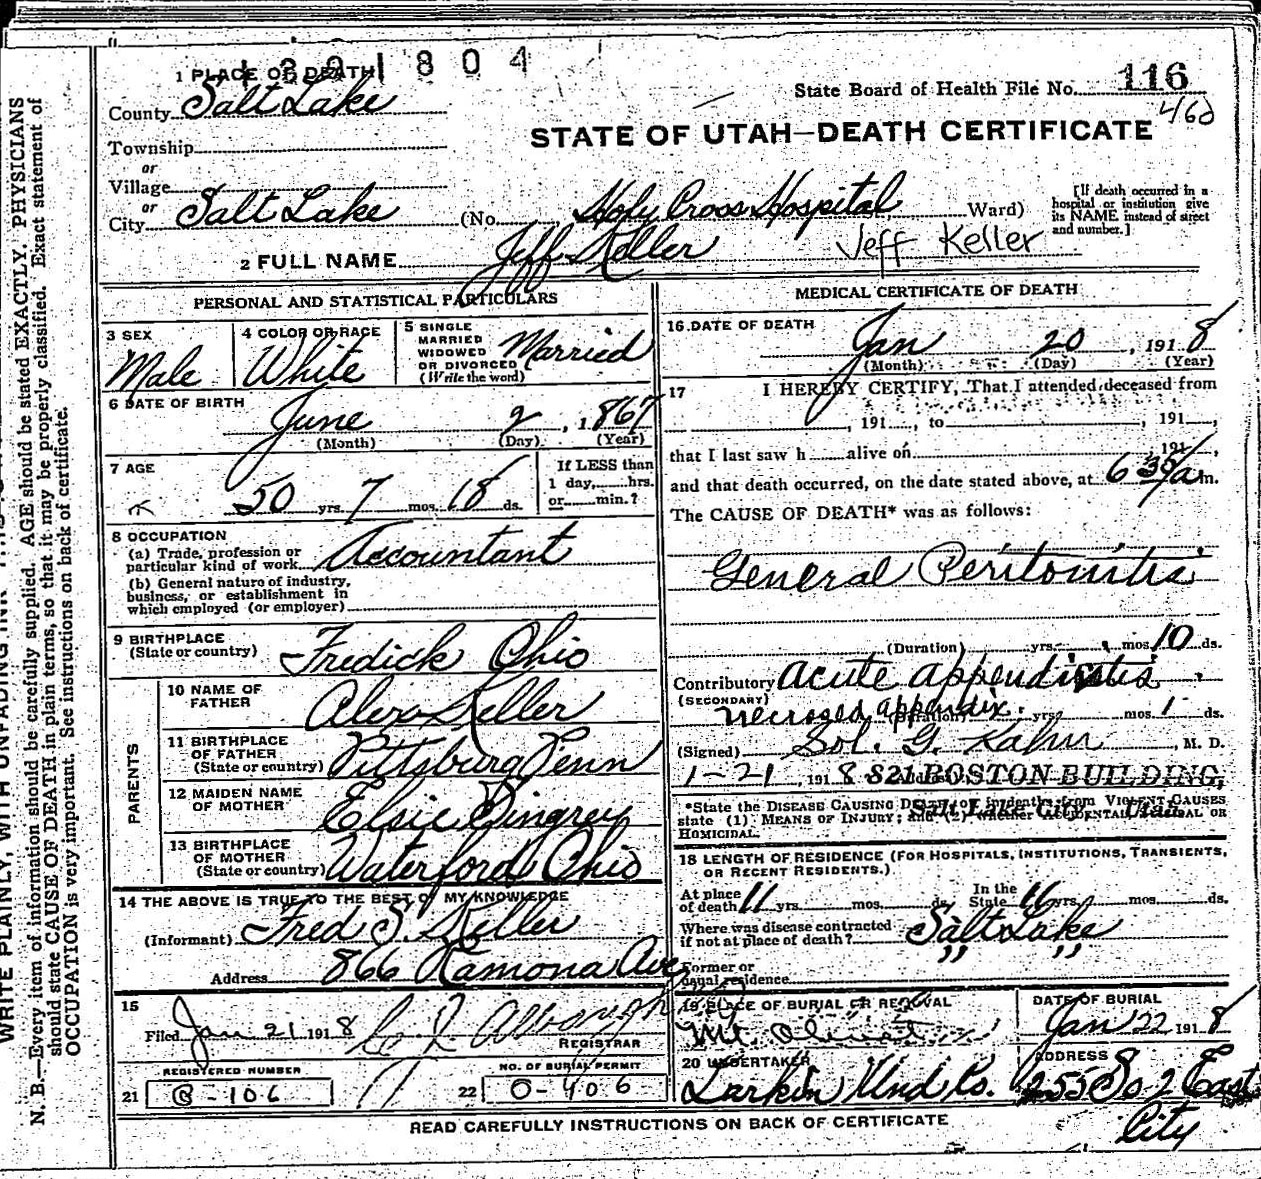 1301804
1 PLACE OF DEATH
State Board of Health File No. 116
460
County Salt Lake
STATE OF UTAH—DEATH CERTIFICATE
Township
or
Village
or
City Salt Lake (No. Holy Cross Hospital Ward)
[If death occurred in a hospital or institution give its NAME instead of street and number.]
2 FULL NAME Jeff Keller Jeff Keller
PERSONAL AND STATISTICAL PARTICULARS
3 SEX Male
4 COLOR OR RACE White
5 SINGLE MARRIED WIDOWED OR DIVORCED (Write the word) Married
6 DATE OF BIRTH
June 2, 1867
(Month) (Day) (Year)
7 AGE
50 yrs. 7 mos. 18 ds.
If LESS than 1 day, hrs. or min.?
8 OCCUPATION
(a) Trade, profession or particular kind of work Accountant
(b) General nature of industry, business, or establishment in which employed (or employer)
9 BIRTHPLACE
(State or country) Fredick Ohio
PARENTS
10 NAME OF FATHER Alex Keller
11 BIRTHPLACE OF FATHER (State or country) Pittsburg Penn
12 MAIDEN NAME OF MOTHER Elsie Dingrey
13 BIRTHPLACE OF MOTHER (State or country) Waterford Ohio
14 THE ABOVE IS TRUE TO THE BEST OF MY KNOWLEDGE
(Informant) Fred S. Keller
Address 866 Ramona Ave
15
Filed Jan 21 1918
REGISTRAR
REGISTERED NUMBER
21 B-106
NO. OF BURIAL PERMIT
22 O-406
MEDICAL CERTIFICATE OF DEATH
16 DATE OF DEATH
Jan 20, 1918
(Month) (Day) (Year)
17 I HEREBY CERTIFY, That I attended deceased from
, 191 , to , 191 ,
that I last saw h alive on 191 ,
and that death occurred, on the date stated above, at 6 30/a m.
The CAUSE OF DEATH* was as follows:
General Peritonitis
(Duration) yrs. mos. 10 ds.
Contributory Acute appendicitis
(SECONDARY)
Necrosed appendix. (Duration) yrs. mos. 1 ds.
(Signed) Sol. G. Kahn, M. D.
1-21, 1918 821 BOSTON BUILDING,
Salt Lake City Utah
*State the DISEASE CAUSING DEATH, or in deaths from VIOLENT CAUSES state (1) MEANS OF INJURY; and (2) whether ACCIDENTAL, SUICIDAL OR HOMICIDAL.
18 LENGTH OF RESIDENCE (FOR HOSPITALS, INSTITUTIONS, TRANSIENTS, OR RECENT RESIDENTS.)
At place of death 11 yrs. mos. ds. In the State 16 yrs. mos. ds.
Where was disease contracted if not at place of death? Salt Lake
Former or usual residence " "
19 PLACE OF BURIAL OR REMOVAL
Mt. Olivet
DATE OF BURIAL
Jan 22 1918
20 UNDERTAKER
Larkin Und Co.
ADDRESS
255 So 2 East
City
READ CAREFULLY INSTRUCTIONS ON BACK OF CERTIFICATE
N. B.—Every item of information should be carefully supplied. AGE should be stated EXACTLY. PHYSICIANS
should state CAUSE OF DEATH in plain terms, so that it may be properly classified. Exact statement of
OCCUPATION is very important. See instructions on back of certificate.
WRITE PLAINLY, WITH UNFADING INK